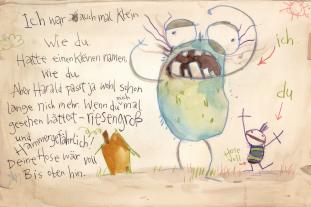 Ich war auch mal Klein
Wie du.
Hatte einen kleinen namen,
Wie du.
Aber Harald passt ja wohl schon
lange nich mehr. Wenn du mich mal
gesehen hättest - riesengroß
und
Hammergefährlich!
Deine Hose wär voll
Bis oten hin.
ich
du
Hose
voll